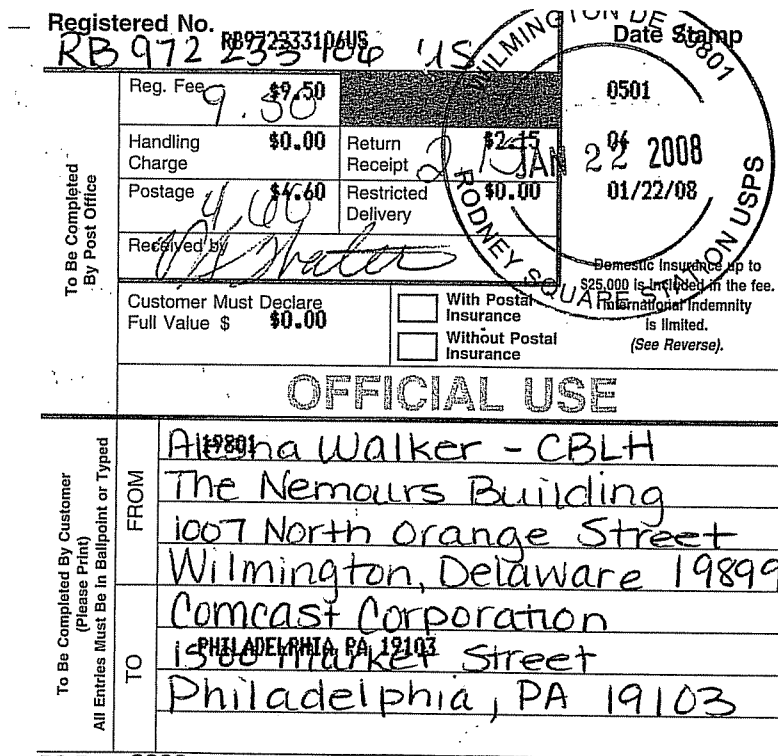 Registered No. RB972233106US
RB 972 233 106 US
Date Stamp
WILMINGTON DE 19801
RODNEY SQUARE STATION USPS
JAN 22 2008
0501
01/22/08
To Be Completed
By Post Office
Reg. Fee $9.50
9.50
Handling
Charge $0.00
Return
Receipt $2.15
Postage $4.60
4.60
Restricted
Delivery $0.00
Received by
Customer Must Declare
Full Value $ $0.00
With Postal
Insurance
Without Postal
Insurance
Domestic Insurance up to
$25,000 is included in the fee.
International Indemnity
is limited.
(See Reverse).
OFFICIAL USE
To Be Completed By Customer
(Please Print)
All Entries Must Be in Ballpoint or Typed
FROM
19801
Walker - CBLH
The Nemours Building
1007 North Orange Street
Wilmington, Delaware 19899
TO
Comcast Corporation
PHILADELPHIA, PA 19103
1500 Market Street
Philadelphia, PA 19103